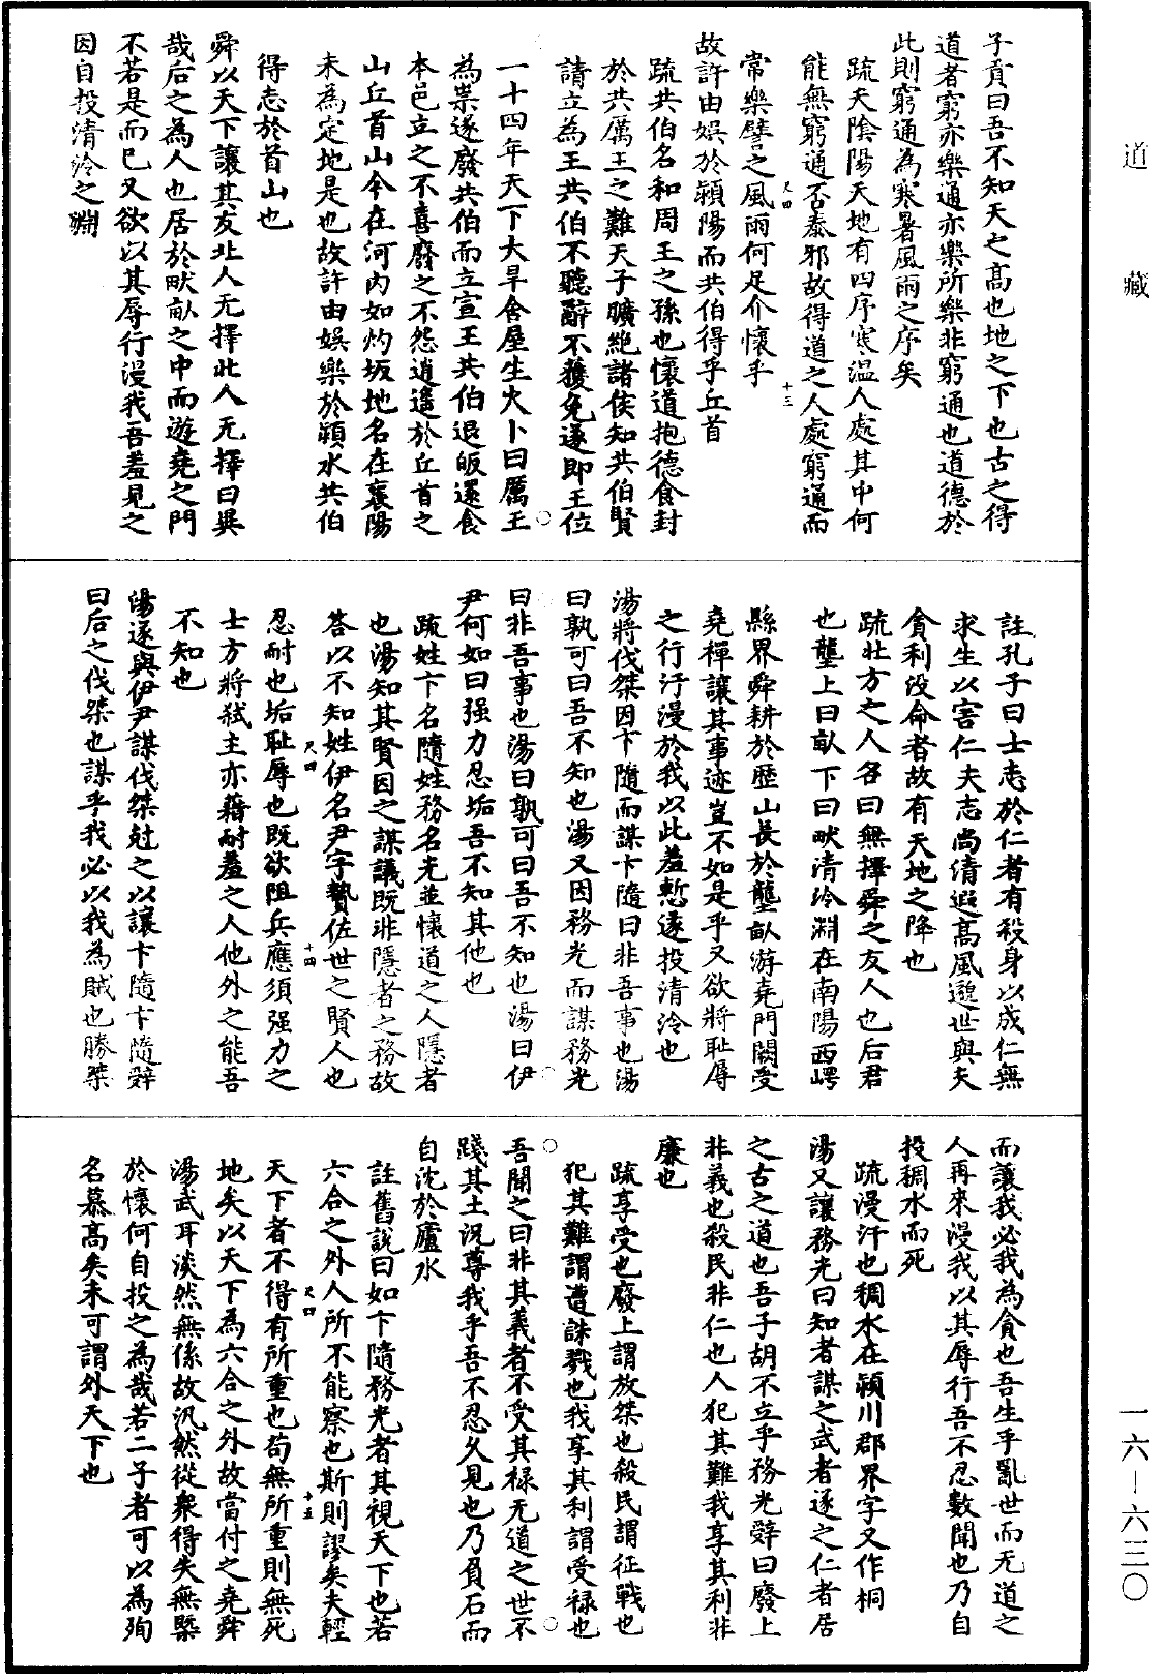 道藏
子貢曰吾不知天之高也地之下也古之得
道者窮亦樂通亦樂所樂非窮通也道德於
此則窮通為寒暑風雨之序矣
疏天陰陽天地有四序寒溫人處其中何
能無窮通否泰邪故得道之人處窮通而
尺四
十三
常樂譬之風雨何足介懷乎
故許由娯於潁陽而共伯得乎丘首
疏共伯名和周王之孫也懷道抱德食封
於共厲王之難天子曠絶諸侯知共伯賢
請立為王共伯不聽辭不獲免遂即王位
一十四年天下大旱舍屋生火卜曰厲王
為祟遂廢共伯而立宣王共伯退皈還食
本邑立之不喜廢之不怨逍遙於丘首之
山丘首山今在河內如灼坂地名在襄陽
未為定地是也故許由娯樂於潁水共伯
得志於首山也
舜以天下讓其友北人无擇北人无擇曰異
哉后之為人也居於畎畝之中而遊堯之門
不若是而已又欲以其辱行漫我吾羞見之
因自投清泠之淵
註孔子曰士志於仁者有殺身以成仁無
求生以害仁夫志尚清遐高風邈世與夫
貪利沒命者故有天地之降也
疏北方之人名曰無擇舜之友人也后君
也壟上曰畝下曰畎清泠淵在南陽西崿
縣界舜耕於歷山長於壟畝游堯門闕受
堯禪讓其事迹豈不如是乎又欲將耻辱
之行汙漫於我以此羞慙遂投清泠也
湯將伐桀因卞隨而謀卞隨曰非吾事也湯
曰孰可曰吾不知也湯又因務光而謀務光
曰非吾事也湯曰孰可曰吾不知也湯曰伊
尹何如曰强力忍垢吾不知其他也
疏姓卞名隨姓務名光並懷道之人隱者
也湯知其賢因之謀議既非隱者之務故
答以不知姓伊名尹字贄佐世之賢人也
尺四
十四
忍耐也垢耻辱也既欲阻兵應須强力之
士方將弑主亦藉耐羞之人他外之能吾
不知也
湯遂與伊尹謀伐桀尅之以讓卞隨卞隨辤
曰后之伐桀也謀乎我必以我為賊也勝桀
而讓我必我為貪也吾生乎亂世而无道之
人再來漫我以其辱行吾不忍數聞也乃自
投稠水而死
疏漫汗也稠水在潁川郡界字又作桐
湯又讓務光曰知者謀之武者遂之仁者居
之古之道也吾子胡不立乎務光辤曰廢上
非義也殺民非仁也人犯其難我享其利非
廉也
疏享受也廢上謂放桀也殺民謂征戰也
犯其難謂遭誅戮也我享其利謂受祿也
吾聞之曰非其義者不受其祿无道之世不
踐其土況尊我乎吾不忍久見也乃負石而
自沈於廬水
註舊說曰如卞隨務光者其視天下也若
六合之外人所不能察也斯則謬矣夫輕
尺四
十五
天下者不得有所重也茍無所重則無死
地矣以天下為六合之外故當付之堯舜
湯武耳淡然無係故汎然從衆得失無槩
於懷何自投之為哉若二子者可以為殉
名慕高矣未可謂外天下也
一六—六三〇